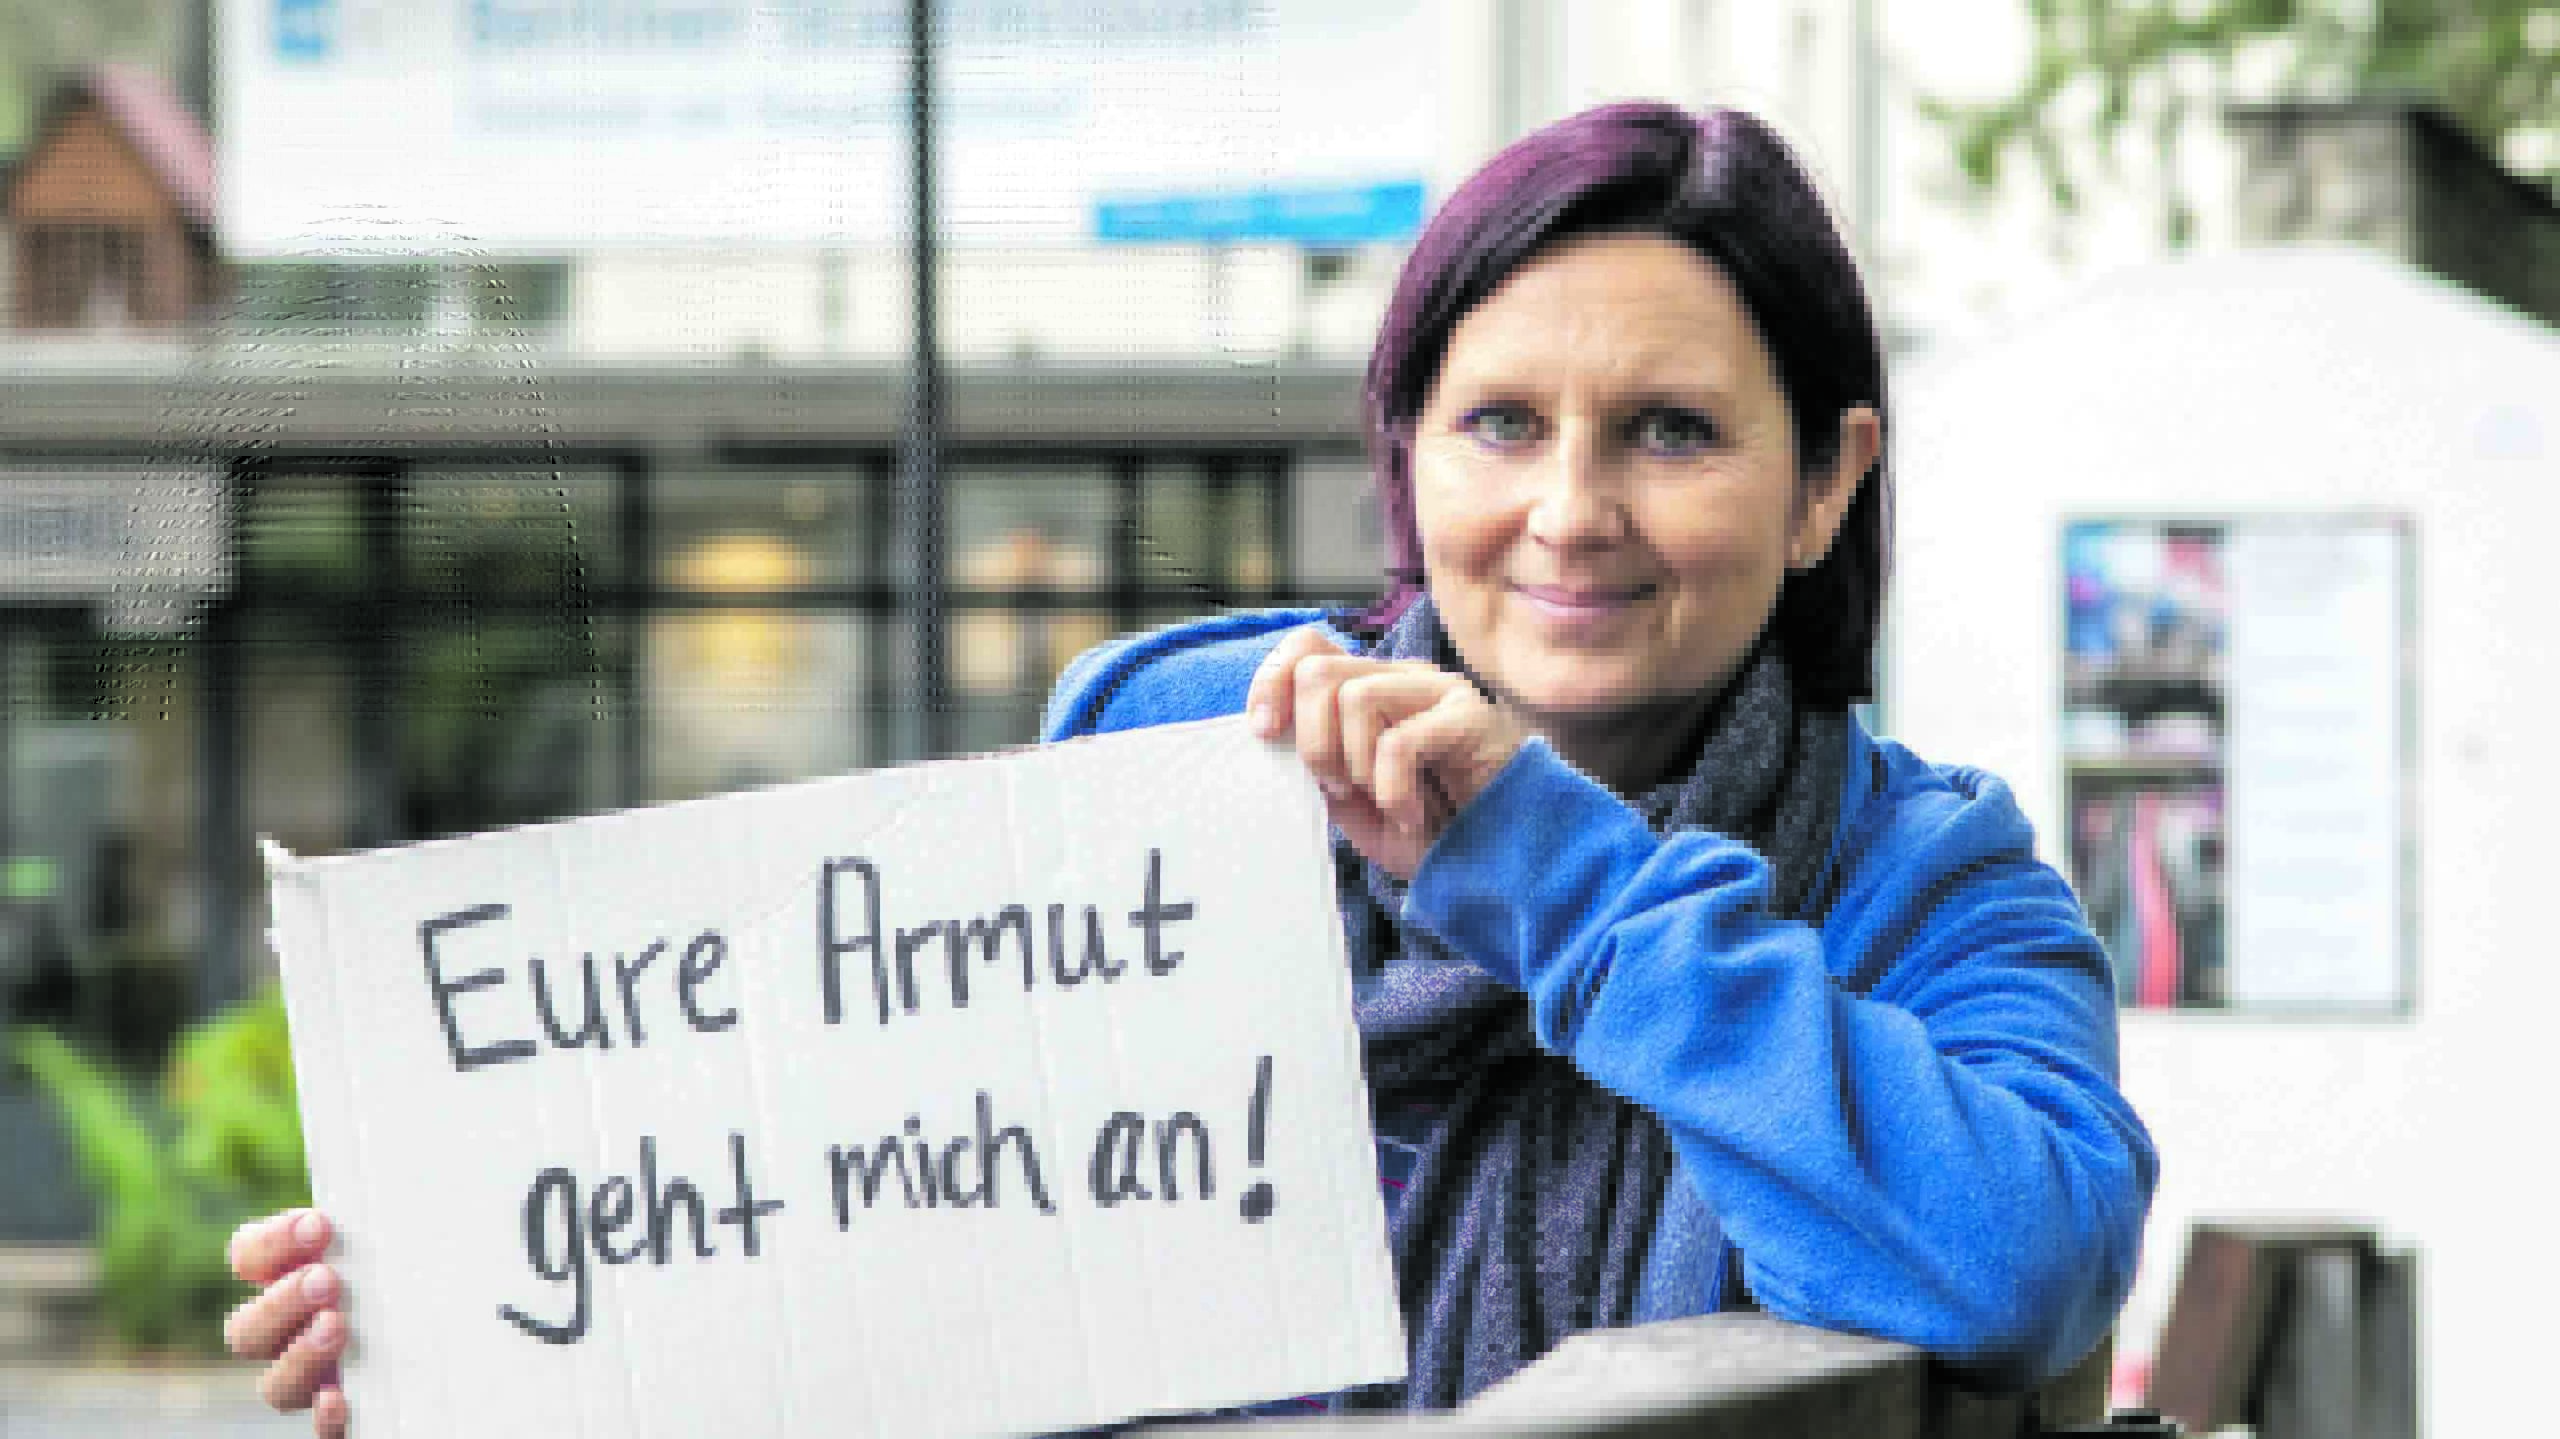 Eure Armut
geht mich an!